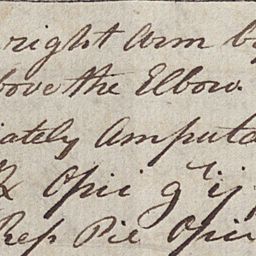 right Arm by
bove the Elbow.
iately Amputa
℞ Opii gr ij
Rep Pil Opii